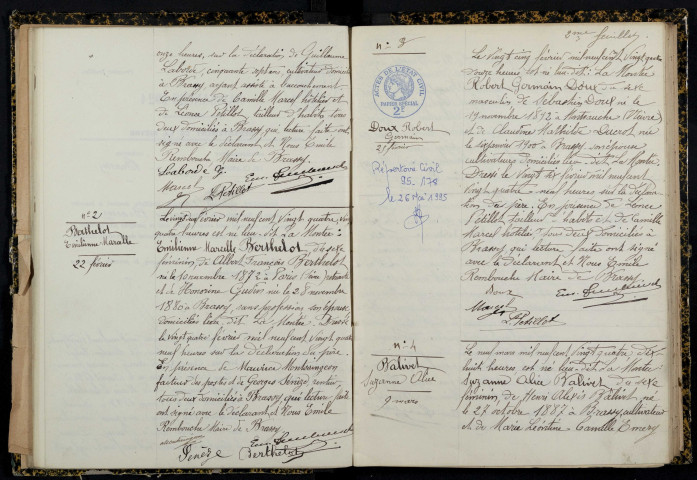 onze heures, sur la déclaration de Guillaume
Laborde, cinquante sept ans, cultivateur domicilié
à Brassy ayant assisté à l'accouchement
En présence de Camille Marcel hôtelier et
de Léonce Petillot tailleur d'habits tous
deux domiciliés à Brassy qui lecture faite ont
signé avec le déclarant et Nous Emile
Rembouche Maire de Brassy.
Laborde G.
Marcel
L. Petillot
n° 2
Berthelot
Emilienne Marcelle
22 février
Le vingt février mil neuf cent vingt quatre, vingt
quatre heures est née lieu dit La Montée :
Emilienne Marcelle Berthelot du sexe
féminin de Albert François Berthelot
né le 10 novembre 1872 à Paris
et de Honorine né le 28 novembre
1880 à Brassy, sans profession son épouse
domiciliés lieu dit La Montée. Dressé
le vingt quatre février mil neuf cent vingt quatre
neuf heures sur la déclaration du père.
En présence de Maurice
facteur des postes et de Georges rentier,
tous deux domiciliés à Brassy, qui lecture faite
ont signé avec le déclarant et Nous Emile
Rembouche Maire de Brassy
Berthelot
2me feuillet
n° 3
ACTES DE L'ETAT CIVIL
PAPIER SPECIAL
2F
Doux Robert
Germain
25 février
Répertoire Civil
95-178
le 26 Mai 1995
Le vingt cinq février mil neuf cent vingt quatre
douze heures est né lieu dit : La Montée
Robert Germain Doux du sexe
masculin de Sébastien Doux né le
19 novembre 1892 à (Nièvre)
et de Claudine Mathilde née
le 1900 à Brassy son épouse
cultivateurs domiciliés lieu dit La Montée.
Dressé le vingt six février mil neuf cent
vingt quatre neuf heures sur la déclara-
tion du père. En présence de Léonce
Petillot tailleur d'habits et de Camille
Marcel hôtelier tous deux domiciliés à
Brassy qui lecture faite ont signé
avec le déclarant et Nous Emile
Rembouche Maire de Brassy.
Doux
Marcel
L. Petillot
n° 4
Balivet
Suzanne Alice
9 mars
Le neuf mars mil neuf cent vingt quatre dix
huit heures est née lieu dit la Montée
Suzanne Alice Balivet du sexe
féminin, de Henri Alexis Balivet né
le 27 octobre 1887 à Brassy, cultivateur
et de Marie Léontine Camille Emery